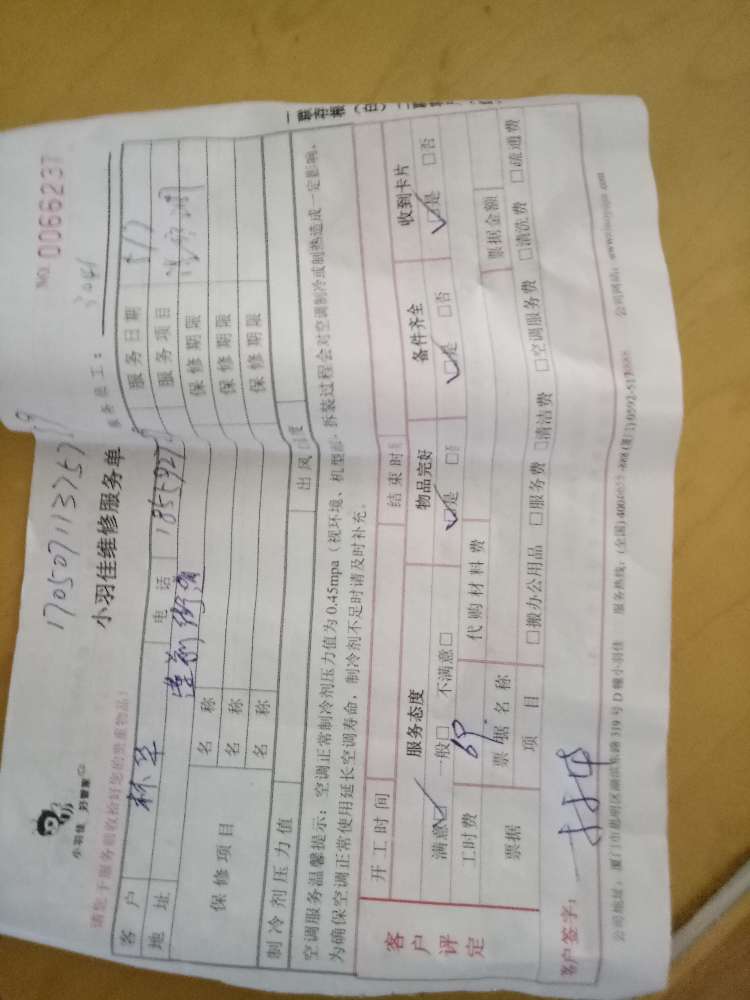 小羽佳 好管家
NO. 0066237
小羽佳维修服务单
服务员工：
请您于服务前收拾好您的贵重物品！
客户 林华 服务日期
地址 电话 服务项目
保修项目 名称 保修期限
名称 保修期限
名称 保修期限
制冷剂压力值 出风温度
空调服务温馨提示：空调正常制冷剂压力值为 0.45mpa（视环境、机型部 拆装过程会对空调制冷或制热造成一定影响。
为确保空调正常使用延长空调寿命，制冷剂不足时请及时补充。
客户评定
开工时间 结束时
服务态度 物品完好 备件齐全 收到卡片
满意☑ 一般□ 不满意□ ☑是 □否 ☑是 □否 ☑是 □否
工时费 69. 代购材料费
票据 票据名称 票据金额
项目 □搬办公用品 □服务费 □清洁费 □空调服务费 □清洗费 □疏通费
客户签字：
公司地址：厦门市思明区湖滨东路 319 号 D 幢小羽佳 服务热线：(全国) 公司网站：